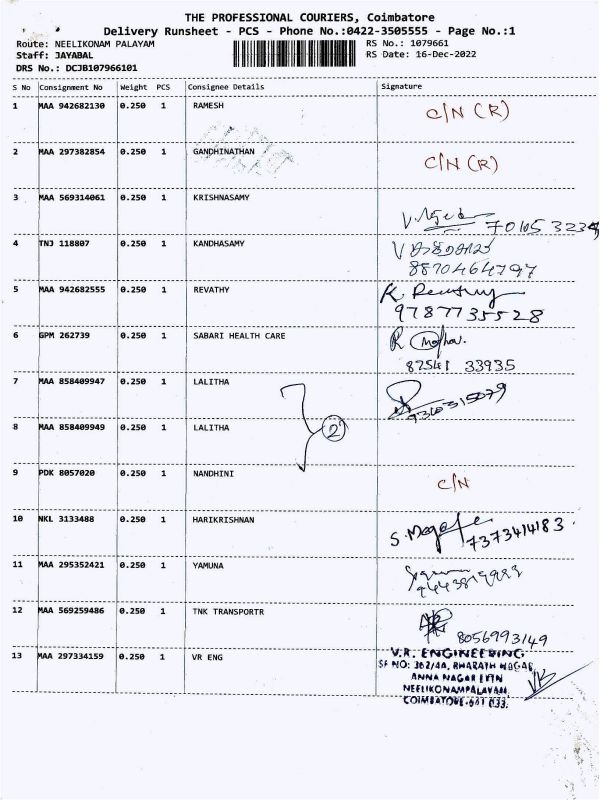 THE PROFESSIONAL COURIERS, Coimbatore
Delivery Runsheet - PCS - Phone No.:0422-3505555 - Page No.:1
Route: NEELIKONAM PALAYAM
RS No.: 1079661
Staff: JAYABAL
RS Date: 16-Dec-2022
DRS No.: DCJB107966101
S No Consignment No Weight PCS Consignee Details Signature
1 MAA 942682130 0.250 1 RAMESH C/N (R)
2 MAA 297382854 0.250 1 GANDHINATHAN C/N (R)
3 MAA 569314061 0.250 1 KRISHNASAMY
4 TNJ 118807 0.250 1 KANDHASAMY
8870464797
5 MAA 942682555 0.250 1 REVATHY
9787735528
6 GPM 262739 0.250 1 SABARI HEALTH CARE
33935
7 MAA 858409947 0.250 1 LALITHA
8 MAA 858409949 0.250 1 LALITHA
2
9 PDK 8057020 0.250 1 NANDHINI C/N
10 NKL 3133488 0.250 1 HARIKRISHNAN
7373414183
11 MAA 295352421 0.250 1 YAMUNA
12 MAA 569259486 0.250 1 TNK TRANSPORTR
8056993149
13 MAA 297334159 0.250 1 VR ENG
V.R. ENGINEERING
SF NO: 362/4A, BHARATH NAGAR,
ANNA NAGAR
NEELIKONAMPALAYAM,
COIMBATORE-641 033.